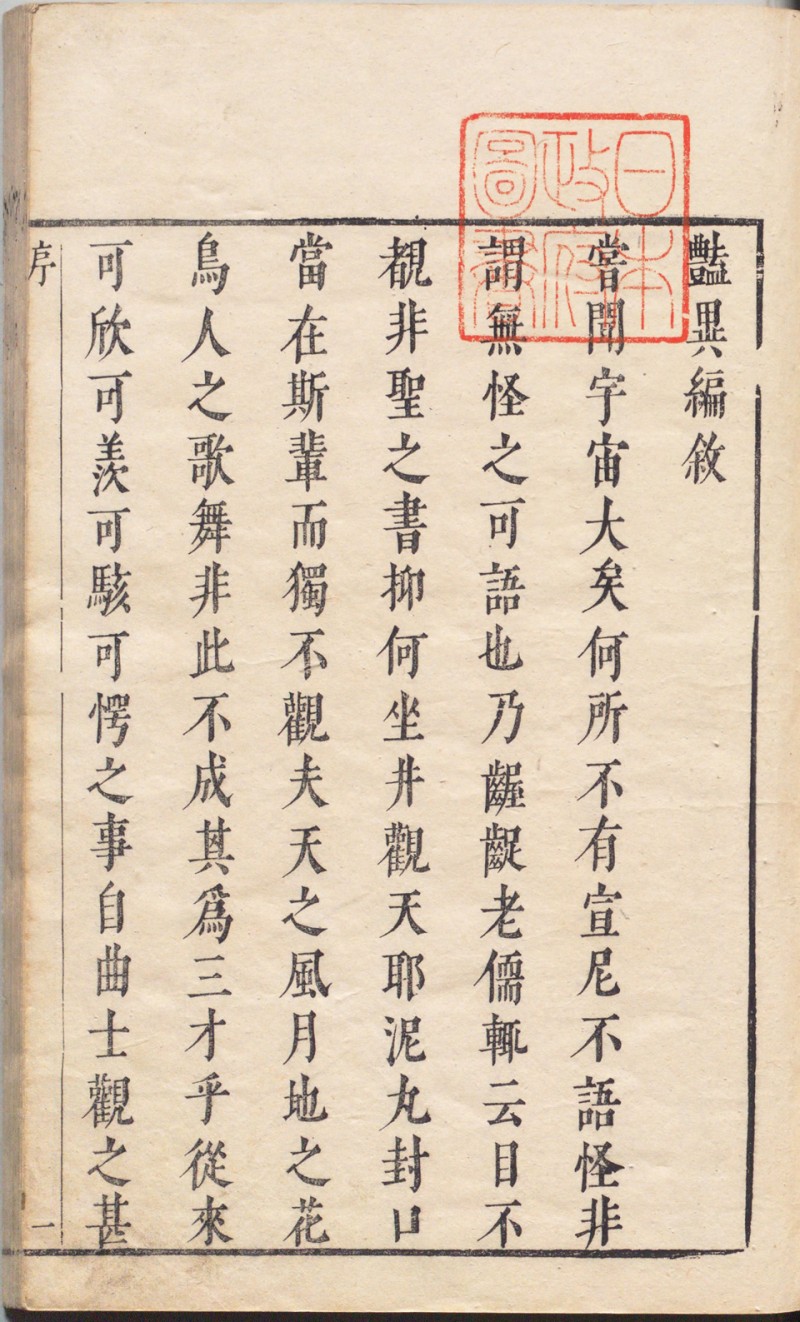 豔異編敘
嘗聞宇宙大矣何所不有宣尼不語怪非
謂無怪之可語也乃齷齪老儒輒云目不
覩非聖之書抑何坐井觀天耶泥丸封口
當在斯輩而獨不觀夫天之風月地之花
鳥人之歌舞非此不成其爲三才乎從來
可欣可羨可駭可愕之事自曲士觀之甚
序
一
日本
政府
圖書